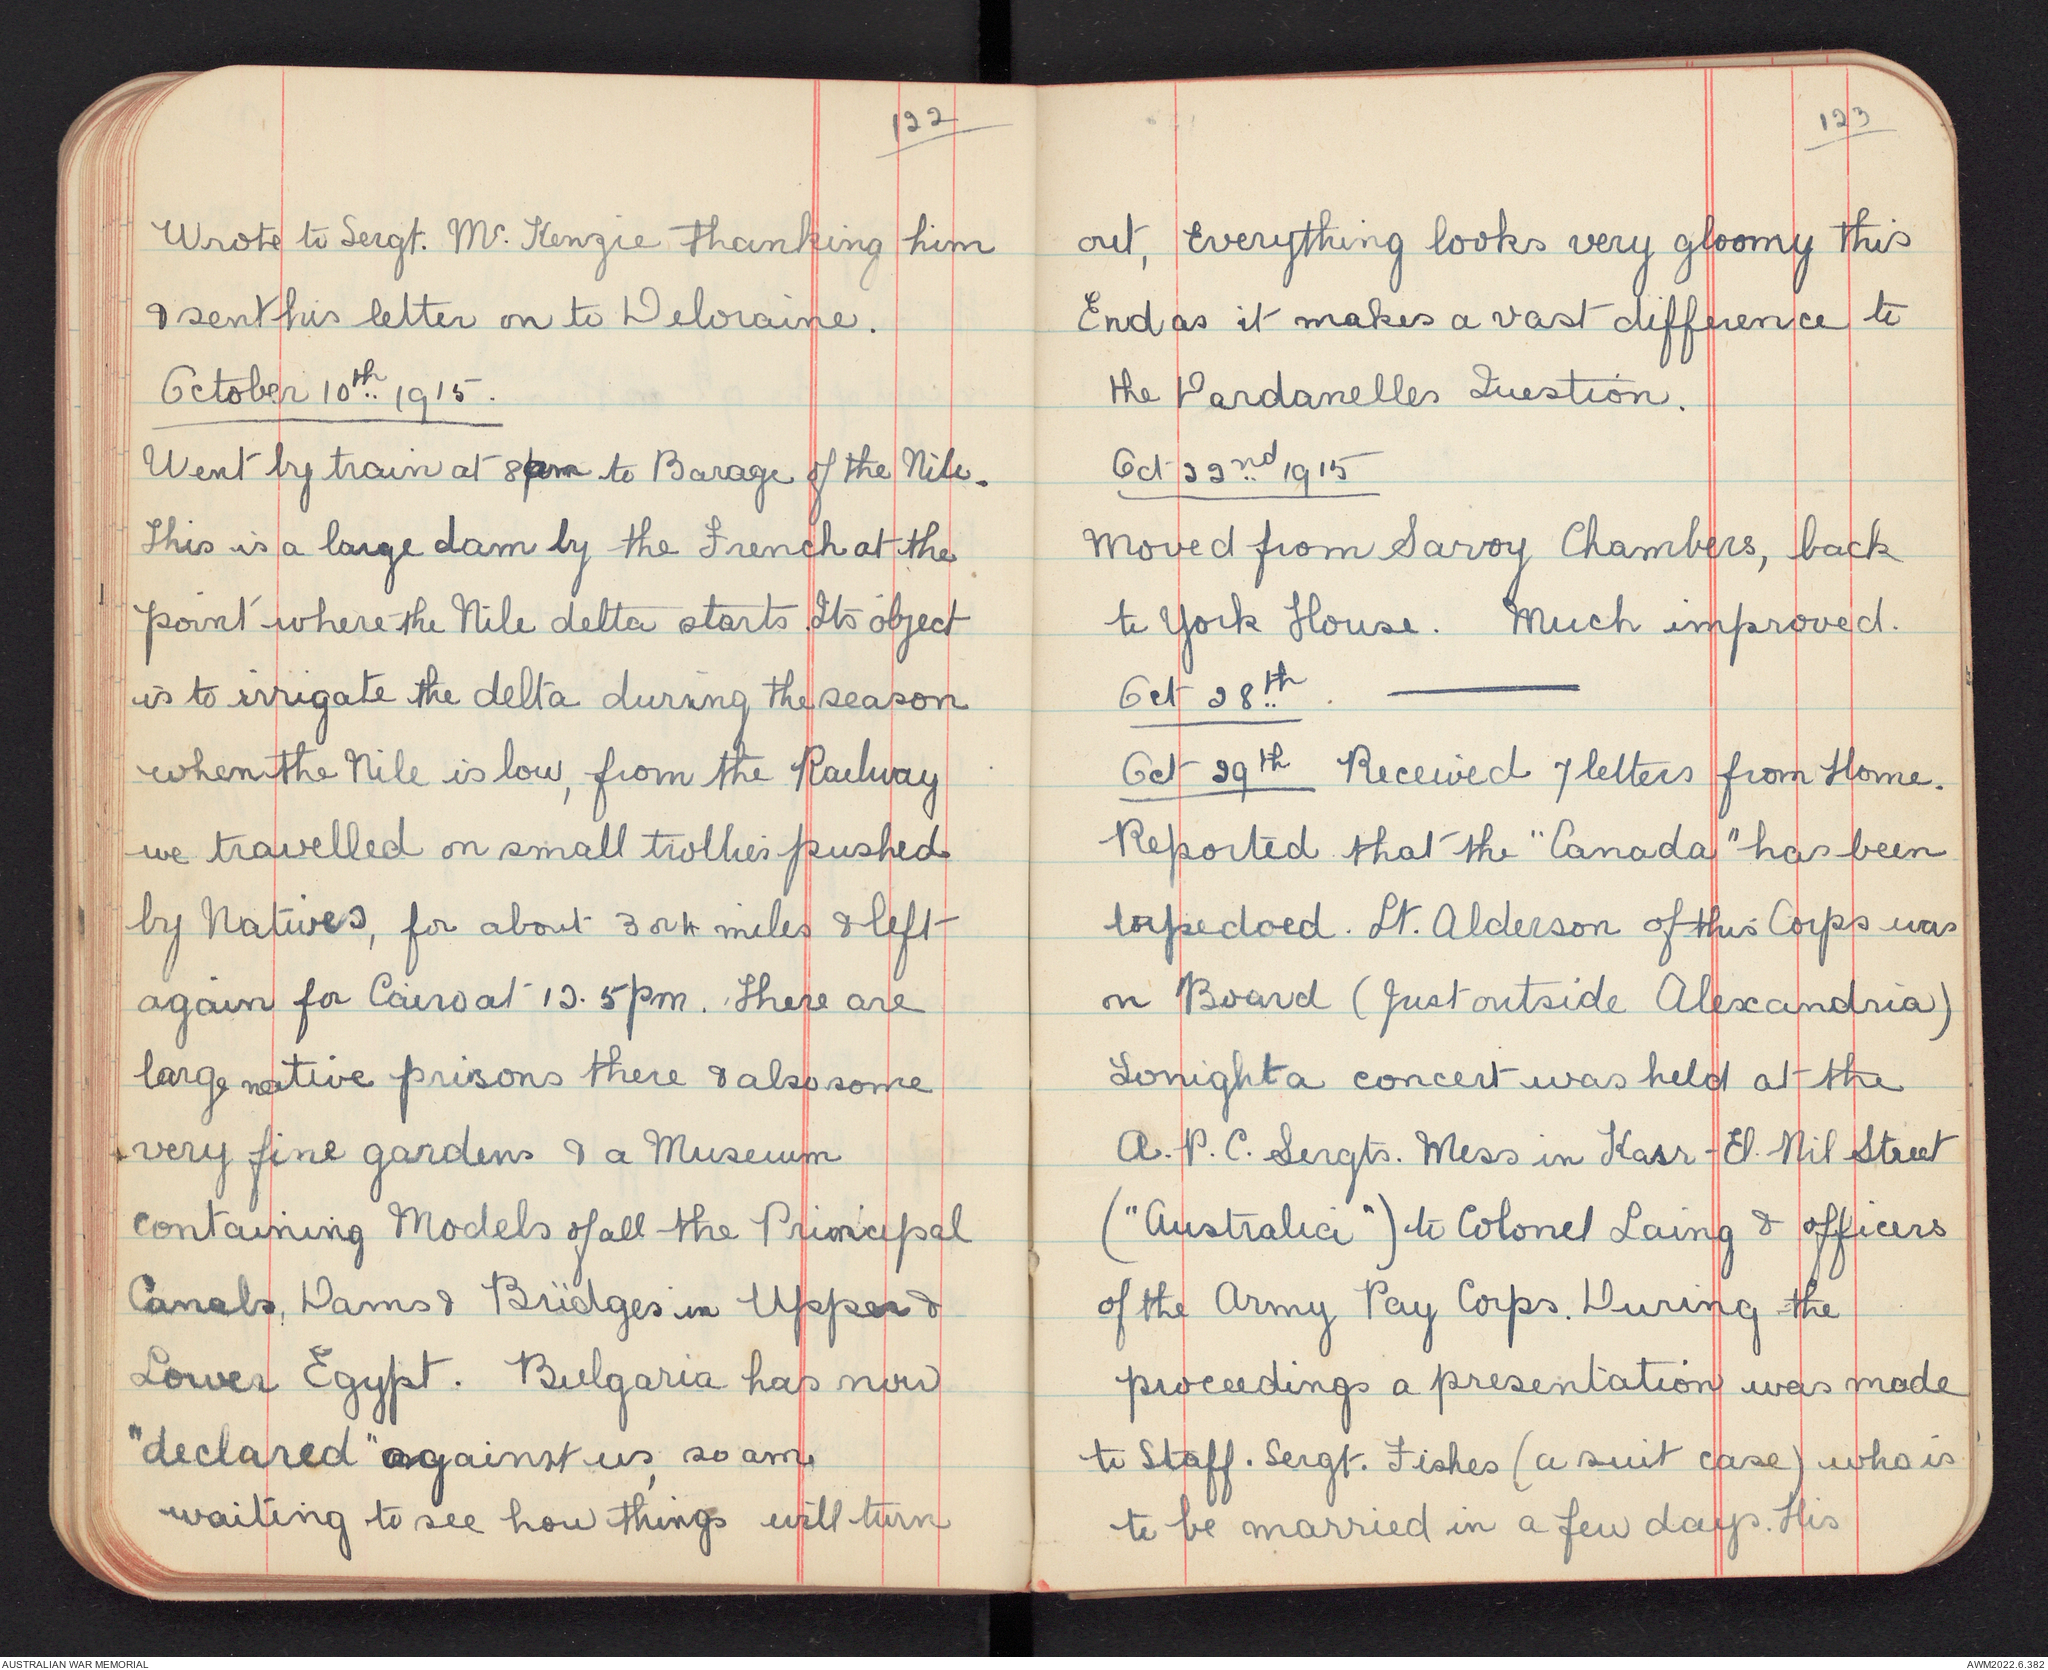 122
Wrote to Sergt. Mc. Kenzie thanking him
& sent his letter on to Deloraine.
October 10th 1915.
Went by train at 8am to Barage of the Nile.
This is a large dam by the French at the
point where the Nile delta starts. Its object
is to irrigate the delta during the season
when the Nile is low, from the Railway
we travelled on small trollies pushed
by Natives, for about 3 or 4 miles & left
again for Cairo at 12.5pm. There are
large native prisons there & also some
very fine gardens & a Museum
containing Models of all the Principal
Canals, Dams & Bridges in Upper &
Lower Egypt. Bulgaria has now
"declared" against us, so am
waiting to see how things will turn
123
out, Everything looks very gloomy this
End as it makes a vast difference to
the Dardanelles Question.
Oct 22nd 1915
Moved from Savoy Chambers, back
to York House. Much improved.
Oct 28th.
Oct 29th Received 7 letters from Home.
Reported that the "Canada" has been
torpedoed. Lt. Alderson of this Corps was
on Board (Just outside Alexandria)
Tonight a concert was held at the
A. P. C. Sergts. Mess in Kasr-El-Nil Street
("Australia") to Colonel Laing & officers
of the Army Pay Corps. During the
proceedings a presentation was made
to Staff. Sergt. Fishes (a suit case) who is
to be married in a few days. His
AUSTRALIAN WAR MEMORIAL
AWM2022.6.382